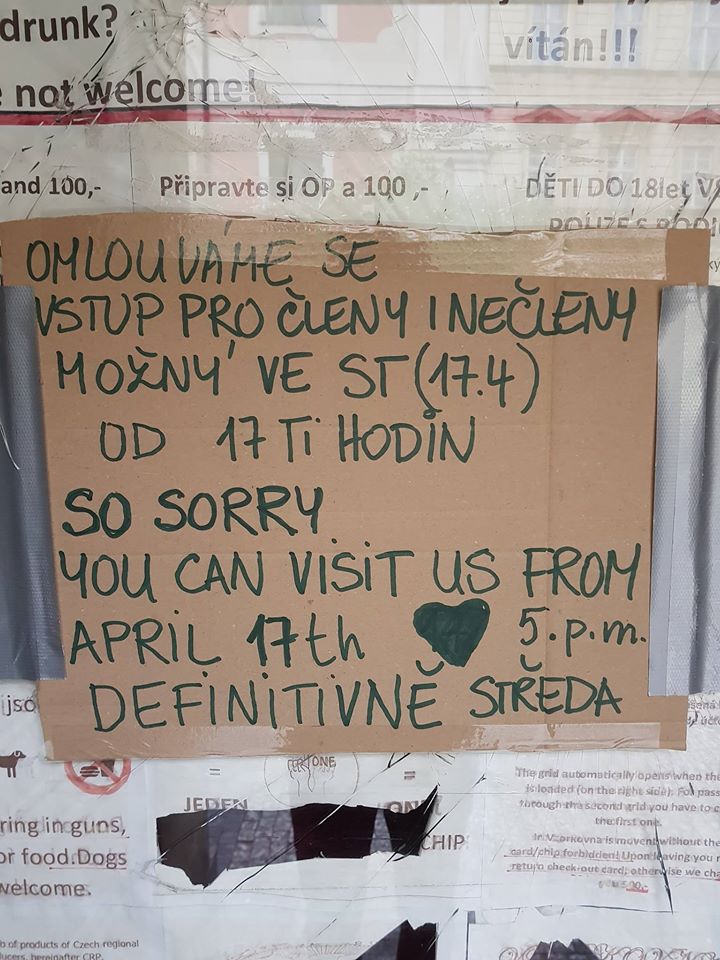 drunk?
vítán!!!
not welcome!
and 100,-
Připravte si OP a 100 ,-
DĚTI DO 18let
OMLOUVÁME SE
VSTUP PRO ČLENY I NEČLENY
MOŽNÝ VE ST (17.4)
OD 17 Ti HODIN
SO SORRY
YOU CAN VISIT US FROM
APRIL 17th ♥ 5.p.m.
DEFINITIVNĚ STŘEDA
= =
JEDEN
CHIP
ring in guns,
or food.Dogs
welcome.
The grid automatically opens when the
is loaded (on the right side). For pass
through the second grid you have to
the first one.
In Vzorkovna is movent without the
card/chip forbidden! Upon leaving you
return check-out card, otherwise we cha
b of products of Czech regional
ucers, hereinafter CRP.